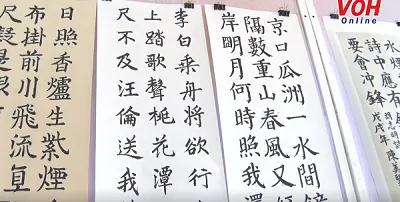 VOH
Online
詩中應有
要會冲鋒
戊戌年陳美
京口瓜洲一水間
隔數重山春風又
岸明月何時照我
李白乘舟將欲行
上踏歌聲桃花潭
尺不及汪倫送我
日照香爐生紫煙
布掛前川飛流直
尺疑是